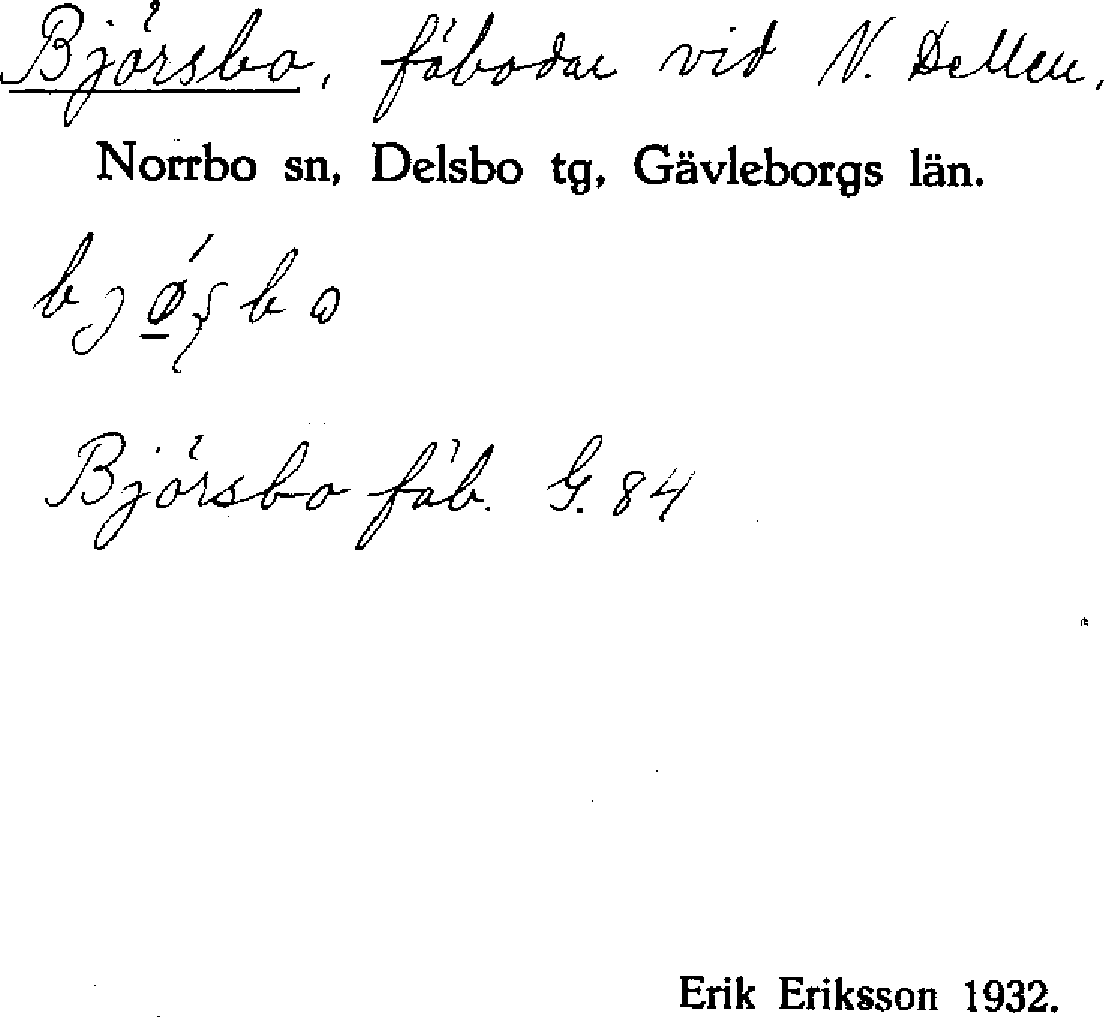 Björsbo, fäbodar vid N. Dellen.
Norrbo sn, Delsbo tg, Gävleborgs län.
Björsbo fäb. G. 84
Erik Eriksson 1932.